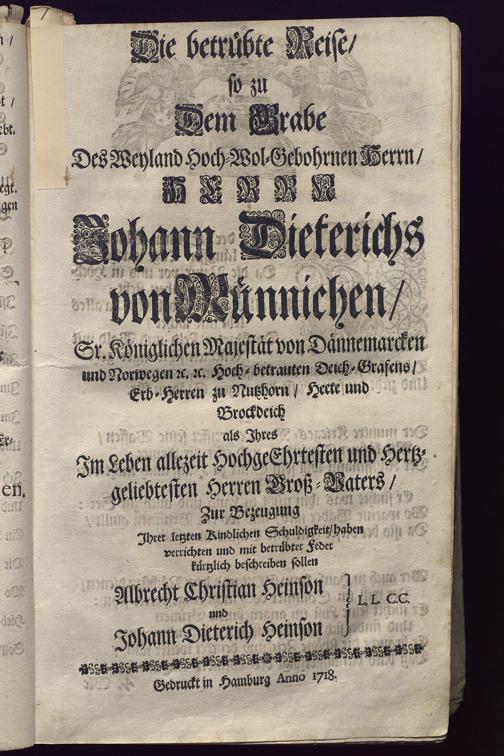 Die betrübte Reise/
so zu
Dem Grabe
Des Weyland Hoch-Wol-Gebohrnen Herrn/
HERRN
Johann Dieterichs
von Münnichen/
Sr. Königlichen Majestät von Dännemarcken
und Norwegen ꝛc. ꝛc. Hoch-betrauten Deich-Grafens/
Erb-Herren zu Nutzhorn/ Hecte und
Brockdeich
als Ihres
Im Leben allezeit HochgeEhrtesten und Hertz-
geliebtesten Herren Groß-Vaters/
Zur Bezeugung
Ihrer letzten Kindlichen Schuldigkeit/haben
verrichten und mit betrübter Feder
kürtzlich beschreiben sollen
Albrecht Christian Heinson
und
Johann Dieterich Heinson
L. L. C.C.
Gedruckt in Hamburg Anno 1718.